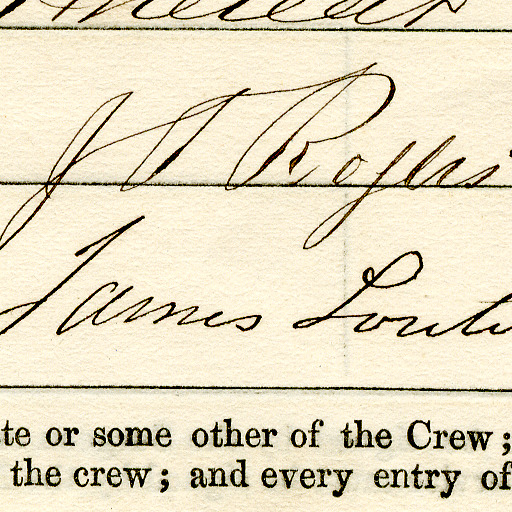 J T Rogers
James
te or some other of the Crew;
the crew; and every entry of